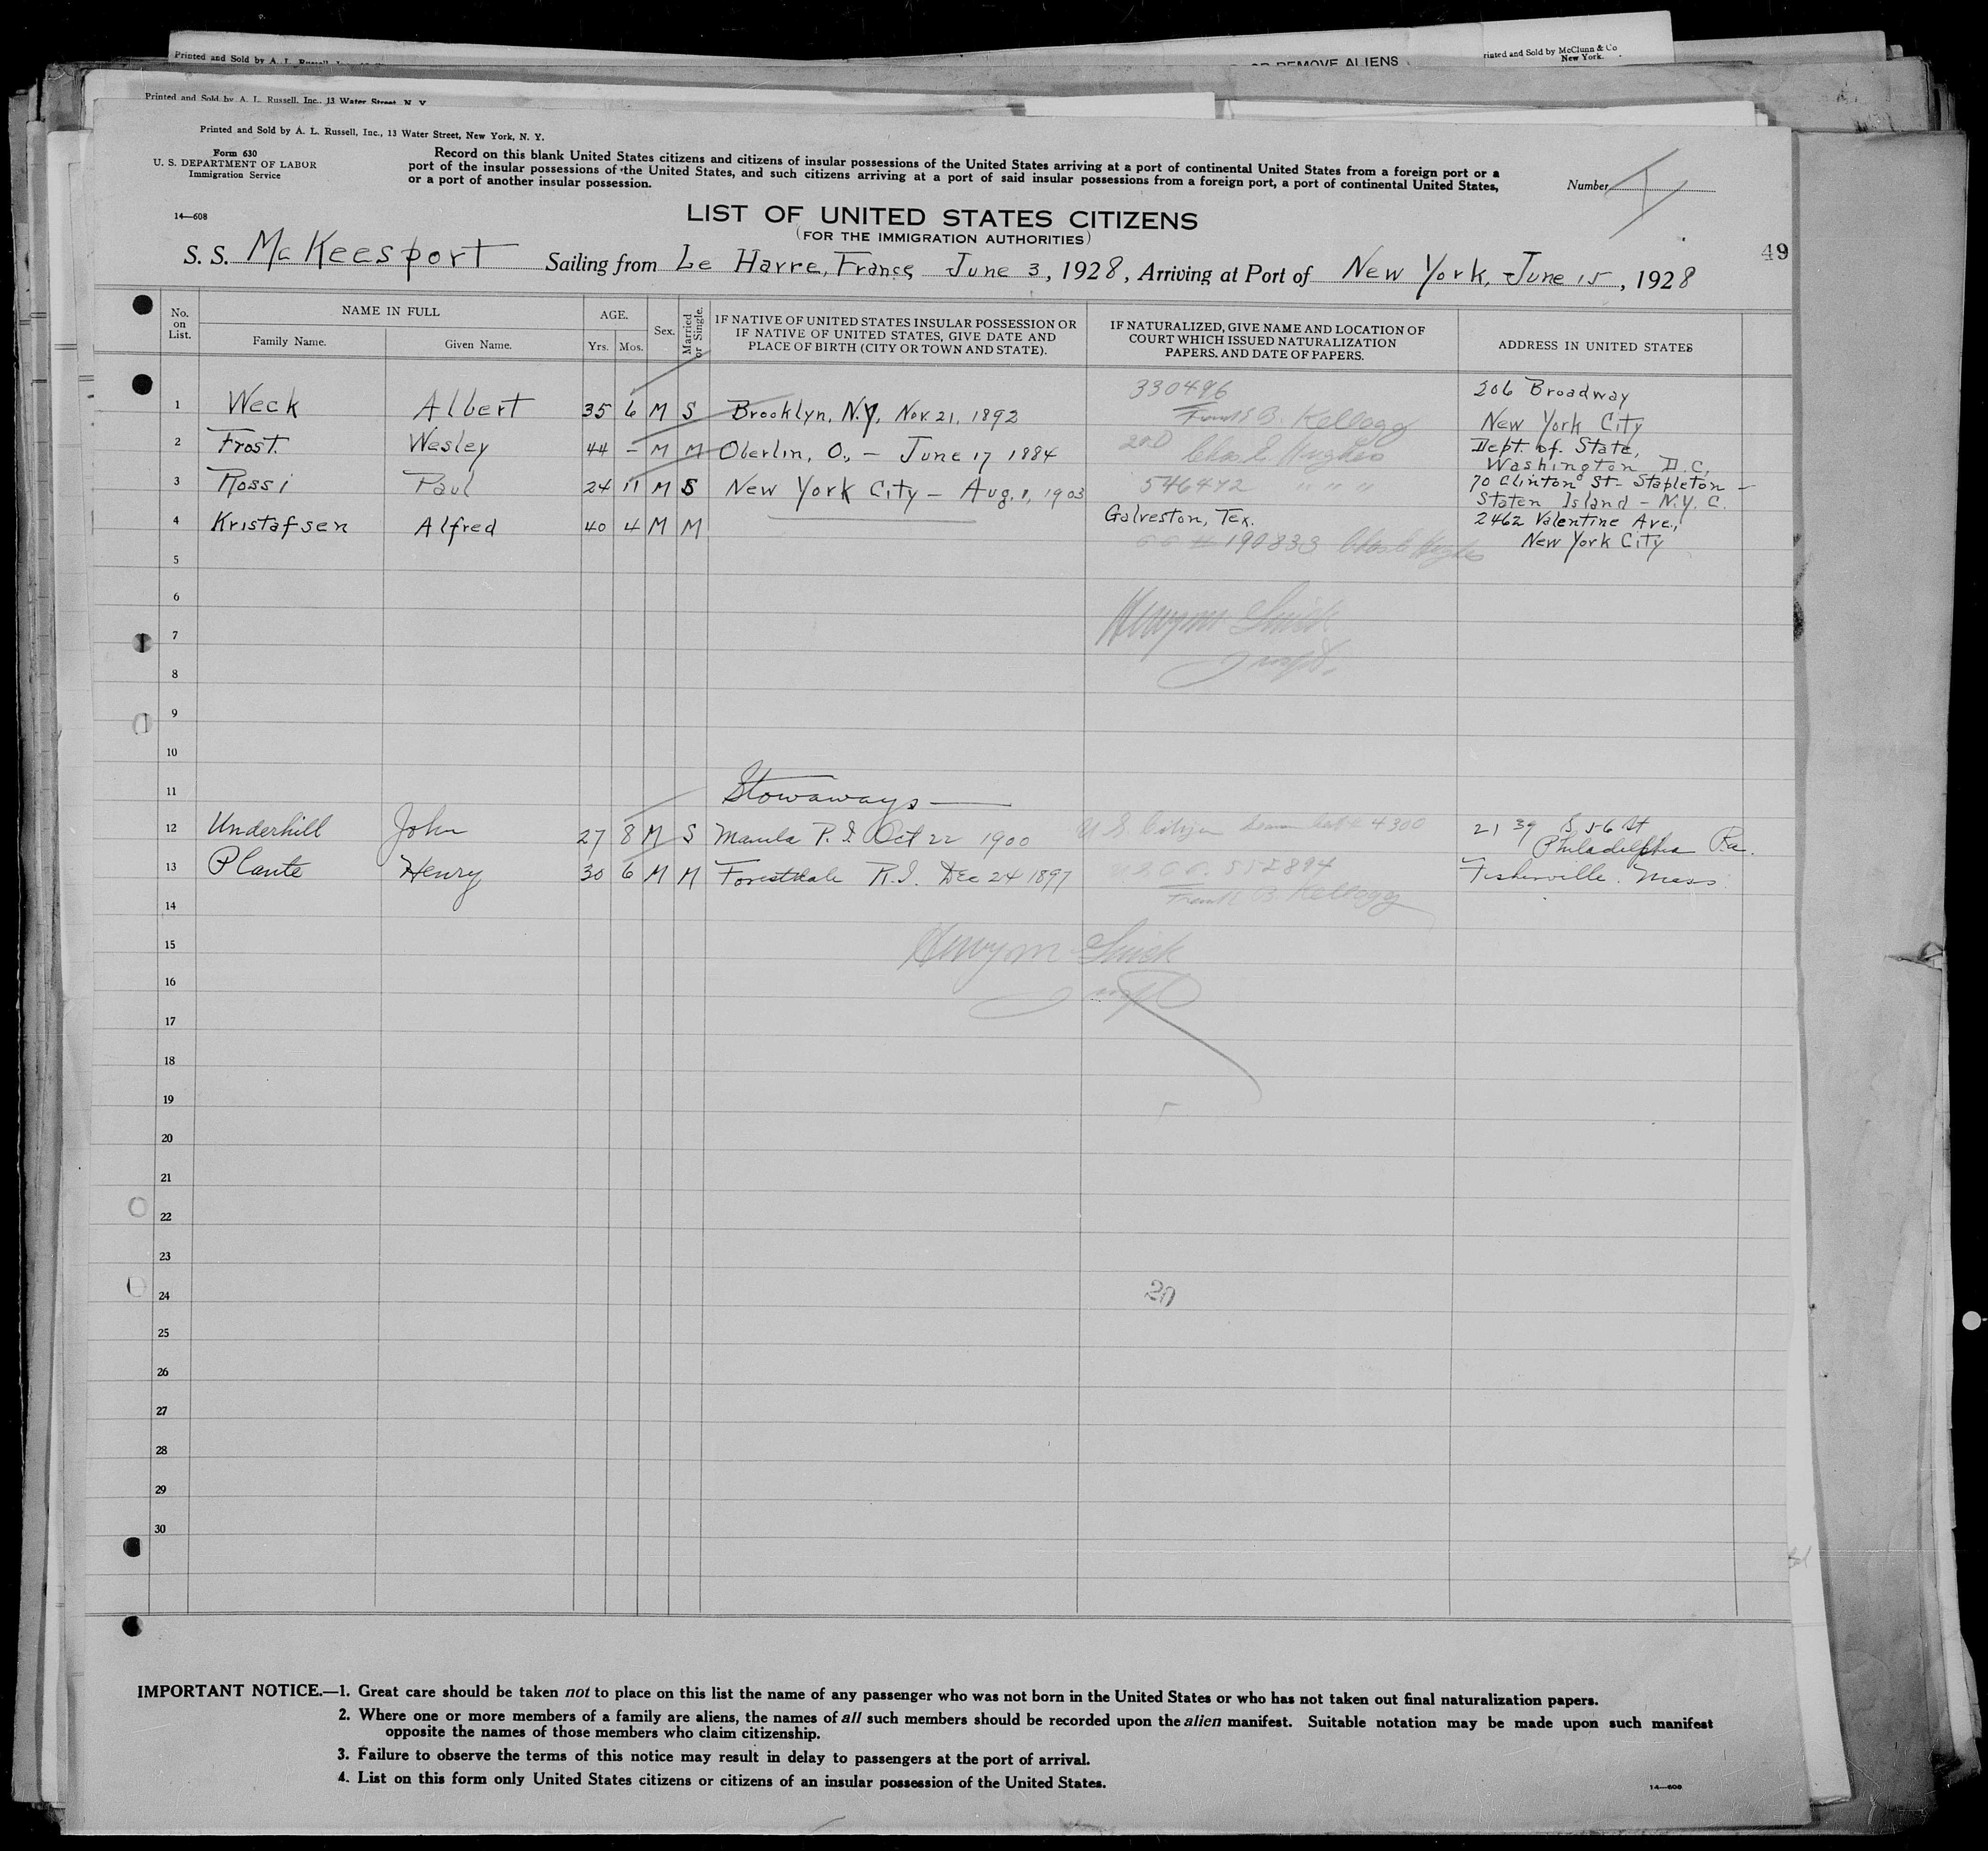 Printed and Sold by A. L. Russell, Inc.
OR REMOVE ALIENS
Printed and Sold by McClunn & Co
New York.
Printed and Sold by A. L. Russell, Inc., 13 Water Street, N. Y.
Printed and Sold by A. L. Russell, Inc., 13 Water Street, New York, N. Y.
Form 630
U. S. DEPARTMENT OF LABOR
Immigration Service
Record on this blank United States citizens and citizens of insular possessions of the United States arriving at a port of continental United States from a foreign port or a
port of the insular possessions of the United States, and such citizens arriving at a port of said insular possessions from a foreign port, a port of continental United States,
or a port of another insular possession.
Number
14—608
LIST OF UNITED STATES CITIZENS
(FOR THE IMMIGRATION AUTHORITIES)
49
S. S. McKeesport Sailing from Le Havre, France June 3, 1928, Arriving at Port of New York, June 15, 1928
No. on List. NAME IN FULL Family Name. Given Name. AGE. Yrs. Mos. Sex. Married or Single. IF NATIVE OF UNITED STATES INSULAR POSSESSION OR IF NATIVE OF UNITED STATES, GIVE DATE AND PLACE OF BIRTH (CITY OR TOWN AND STATE). IF NATURALIZED, GIVE NAME AND LOCATION OF COURT WHICH ISSUED NATURALIZATION PAPERS, AND DATE OF PAPERS. ADDRESS IN UNITED STATES
330496 206 Broadway
1 Weck Albert 35 6 M S Brooklyn, N.Y, Nov. 21, 1892 Frank B. Kellogg New York City
2 Frost. Wesley 44 – M M Oberlin, O., – June 17 1884 Chas E. Hughes Dept. of State,
Washington D.C.
3 Rossi Paul 24 11 M S New York City – Aug. 1, 1903 546472 " " " 70 Clinton St – Stapleton –
Staten Island – N.Y. C.
4 Kristafsen Alfred 40 4 M M Galveston, Tex. 2462 Valentine Ave.,
190833 Chas E Hughes New York City
5
6
7
8
9
10
11 Stowaways —
12 Underhill John 27 8 M S Manila P. I. Oct 22 1900 U S. Citizen 4300 2139 S 56 St
Philadelphia Pa.
13 Plante Henry 30 6 M M Forestdale R.I. Dec 24 1897 552894 Fisherville. Mass
14 Frank B. Kellogg
15
16
17
18
19
20
21
22
23
24
25
26
27
28
29
30
IMPORTANT NOTICE.—1. Great care should be taken not to place on this list the name of any passenger who was not born in the United States or who has not taken out final naturalization papers.
2. Where one or more members of a family are aliens, the names of all such members should be recorded upon the alien manifest. Suitable notation may be made upon such manifest
opposite the names of those members who claim citizenship.
3. Failure to observe the terms of this notice may result in delay to passengers at the port of arrival.
4. List on this form only United States citizens or citizens of an insular possession of the United States.
14—608